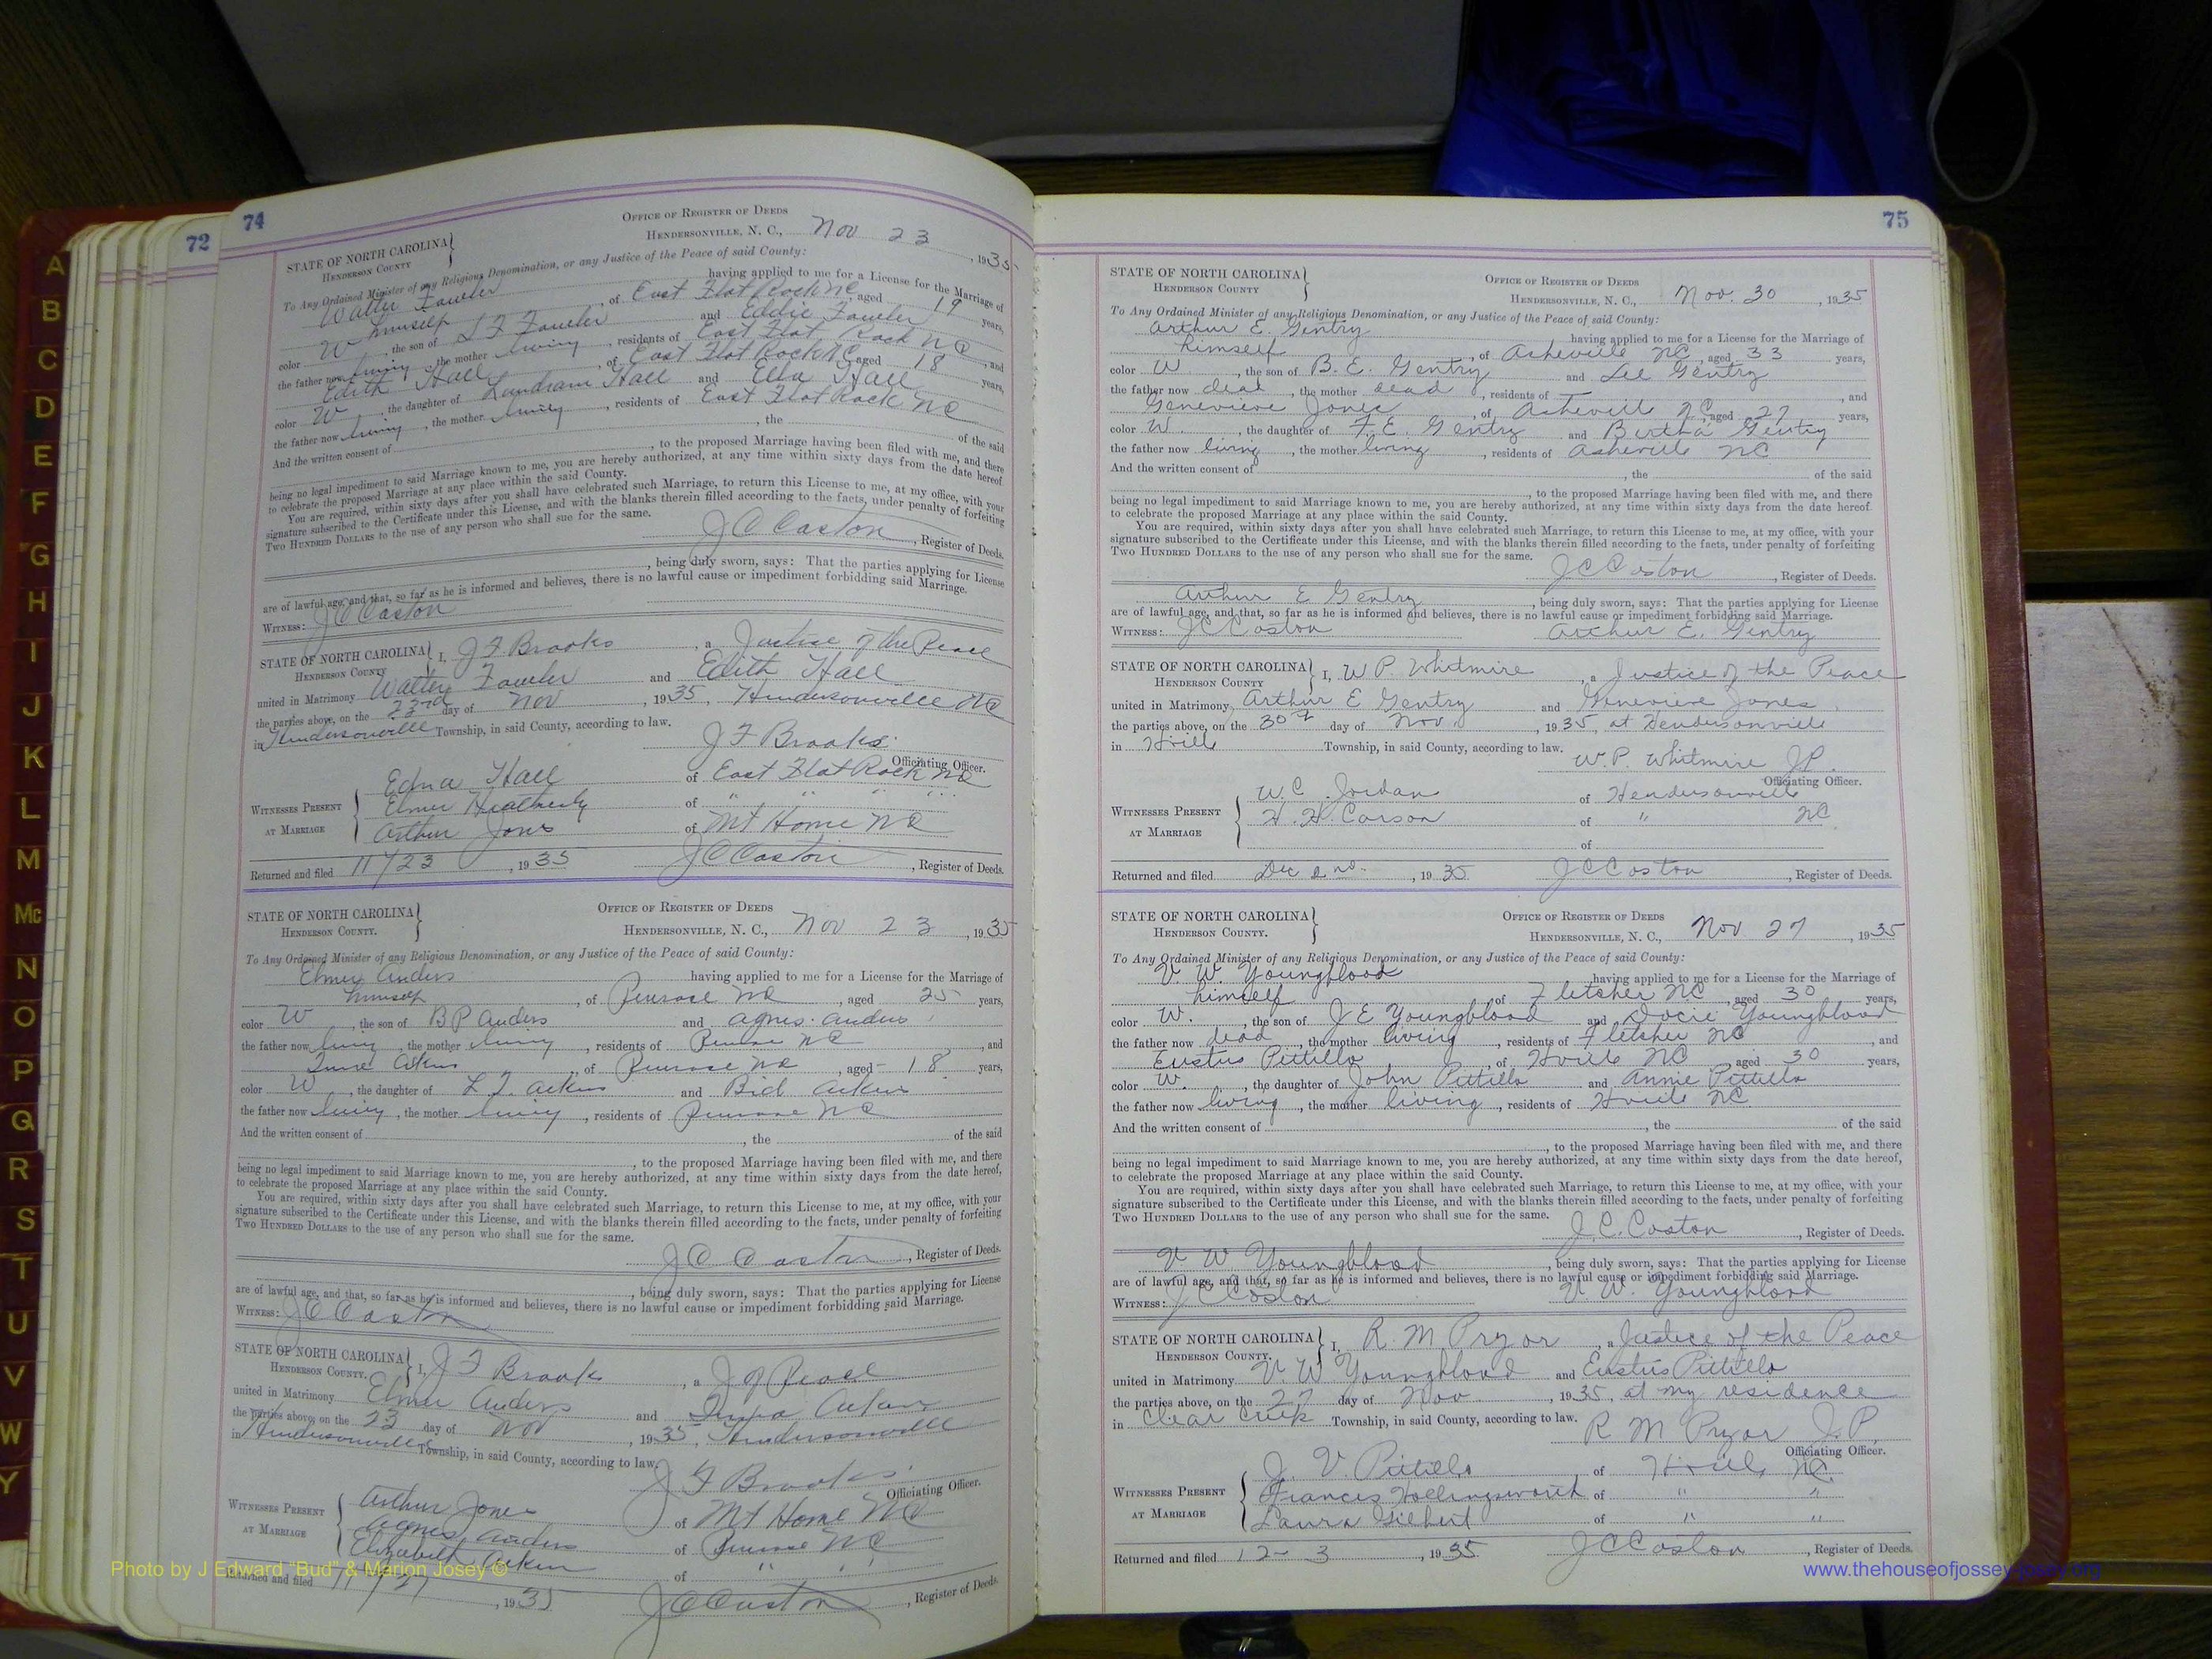 A
B
C
D
E
F
G
H
I
J
K
L
M
Mc
N
O
P
Q
R
S
T
U
V
W
Y
72
74
OFFICE OF REGISTER OF DEEDS
STATE OF NORTH CAROLINA
HENDERSON COUNTY
HENDERSONVILLE, N. C., Nov 23, 1935
To Any Ordained Minister of any Religious Denomination, or any Justice of the Peace of said County:
Walter Fowler having applied to me for a License for the Marriage of
himself, of East Flat Rock NC, aged 19 years,
color W, the son of L F Fowler and Eddie Fowler
the father now living, the mother living, residents of East Flat Rock NC, and
Edith Hall, of East Flat Rock NC, aged 18 years,
color W, the daughter of Landrum Hall and Ella Hall
the father now living, the mother living, residents of East Flat Rock NC
And the written consent of , the of the said
, to the proposed Marriage having been filed with me, and there
being no legal impediment to said Marriage known to me, you are hereby authorized, at any time within sixty days from the date hereof,
to celebrate the proposed Marriage at any place within the said County.
You are required, within sixty days after you shall have celebrated such Marriage, to return this License to me, at my office, with your
signature subscribed to the Certificate under this License, and with the blanks therein filled according to the facts, under penalty of forfeiting
TWO HUNDRED DOLLARS to the use of any person who shall sue for the same.
J C Coston, Register of Deeds.
, being duly sworn, says: That the parties applying for License
are of lawful age, and that, so far as he is informed and believes, there is no lawful cause or impediment forbidding said Marriage.
WITNESS: J C Coston
STATE OF NORTH CAROLINA
HENDERSON COUNTY
I, J F Brooks, a Justice of the Peace
united in Matrimony Walter Fowler and Edith Hall
the parties above, on the 23rd day of Nov, 1935, Hendersonville NC
in Hendersonville Township, in said County, according to law.
J F Brooks
Officiating Officer.
WITNESSES PRESENT AT MARRIAGE
Edna Hall of East Flat Rock NC
Elmer Heatherly of " " " "
Arthur Jones of Mt Home NC
Returned and filed 11/23, 1935 J C Coston, Register of Deeds.
STATE OF NORTH CAROLINA
HENDERSON COUNTY.
OFFICE OF REGISTER OF DEEDS
HENDERSONVILLE, N. C., Nov 23, 1935
To Any Ordained Minister of any Religious Denomination, or any Justice of the Peace of said County:
Elmer Anders having applied to me for a License for the Marriage of
himself, of Penrose NC, aged 25 years,
color W, the son of B P Anders and Agnes Anders
the father now living, the mother living, residents of Penrose NC, and
Aiken, of Penrose NC, aged 18 years,
color W, the daughter of L. Aiken and Bid Aiken
the father now living, the mother living, residents of Penrose NC
And the written consent of , the of the said
, to the proposed Marriage having been filed with me, and there
being no legal impediment to said Marriage known to me, you are hereby authorized, at any time within sixty days from the date hereof,
to celebrate the proposed Marriage at any place within the said County.
You are required, within sixty days after you shall have celebrated such Marriage, to return this License to me, at my office, with your
signature subscribed to the Certificate under this License, and with the blanks therein filled according to the facts, under penalty of forfeiting
TWO HUNDRED DOLLARS to the use of any person who shall sue for the same.
J C Coston, Register of Deeds.
, being duly sworn, says: That the parties applying for License
are of lawful age, and that, so far as he is informed and believes, there is no lawful cause or impediment forbidding said Marriage.
WITNESS: J C Coston
STATE OF NORTH CAROLINA
HENDERSON COUNTY.
I, J F Brooks, a J of Peace
united in Matrimony Elmer Anders and Aiken
the parties above, on the 23 day of Nov, 1935, Hendersonville
in Hendersonville Township, in said County, according to law.
J F Brooks
Officiating Officer.
WITNESSES PRESENT AT MARRIAGE
Arthur Jones of Mt Home NC
Agnes Anders of Penrose NC
Elizabeth Aiken of " "
Returned and filed 11/27, 1935 J C Coston, Register of Deeds.
75
STATE OF NORTH CAROLINA
HENDERSON COUNTY
OFFICE OF REGISTER OF DEEDS
HENDERSONVILLE, N. C., Nov. 30, 1935
To Any Ordained Minister of any Religious Denomination, or any Justice of the Peace of said County:
Arthur E. Gentry having applied to me for a License for the Marriage of
himself, of Asheville NC, aged 33 years,
color W, the son of B. E. Gentry and Lee Gentry
the father now dead, the mother dead, residents of —, and
Genevieve Jones, of Asheville NC, aged 27 years,
color W., the daughter of F. E. Gentry and Birtha Gentry
the father now living, the mother living, residents of Asheville NC
And the written consent of , the of the said
, to the proposed Marriage having been filed with me, and there
being no legal impediment to said Marriage known to me, you are hereby authorized, at any time within sixty days from the date hereof.
to celebrate the proposed Marriage at any place within the said County.
You are required, within sixty days after you shall have celebrated such Marriage, to return this License to me, at my office, with your
signature subscribed to the Certificate under this License, and with the blanks therein filled according to the facts, under penalty of forfeiting
TWO HUNDRED DOLLARS to the use of any person who shall sue for the same.
J C Coston, Register of Deeds.
Arthur E Gentry, being duly sworn, says: That the parties applying for License
are of lawful age, and that, so far as he is informed and believes, there is no lawful cause or impediment forbidding said Marriage.
WITNESS: J C Coston Arthur E. Gentry
STATE OF NORTH CAROLINA
HENDERSON COUNTY
I, W P. Whitmire, a Justice of the Peace
united in Matrimony, Arthur E Gentry and Genevieve Jones,
the parties above, on the 30th day of Nov, 1935, at Hendersonville
in Hville Township, in said County, according to law.
W. P. Whitmire J.P.
Officiating Officer.
WITNESSES PRESENT AT MARRIAGE
W. C. Jordan of Hendersonville
H. H. Carson of " NC
of
Returned and filed Dec 2nd., 1935 J C Coston, Register of Deeds.
STATE OF NORTH CAROLINA
HENDERSON COUNTY.
OFFICE OF REGISTER OF DEEDS
HENDERSONVILLE, N. C., Nov 27, 1935
To Any Ordained Minister of any Religious Denomination, or any Justice of the Peace of said County:
V. W. Youngblood having applied to me for a License for the Marriage of
himself of Fletcher NC, aged 30 years,
color W., the son of J E Youngblood and Docie Youngblood
the father now dead, the mother living, residents of Fletcher NC, and
Eustus Pittillo, of Hville NC aged 30 years,
color W., the daughter of John Pittillo and Annie Pittillo
the father now living, the mother living, residents of Hville NC
And the written consent of , the of the said
, to the proposed Marriage having been filed with me, and there
being no legal impediment to said Marriage known to me, you are hereby authorized, at any time within sixty days from the date hereof,
to celebrate the proposed Marriage at any place within the said County.
You are required, within sixty days after you shall have celebrated such Marriage, to return this License to me, at my office, with your
signature subscribed to the Certificate under this License, and with the blanks therein filled according to the facts, under penalty of forfeiting
TWO HUNDRED DOLLARS to the use of any person who shall sue for the same.
J. C. Coston, Register of Deeds.
V W Youngblood, being duly sworn, says: That the parties applying for License
are of lawful age, and that, so far as he is informed and believes, there is no lawful cause or impediment forbidding said Marriage.
WITNESS: J C Coston V W. Youngblood
STATE OF NORTH CAROLINA
HENDERSON COUNTY.
I, R. M Pryor, a Justice of the Peace
united in Matrimony V W Youngblood and Eustus Pittillo
the parties above, on the 27 day of Nov, 1935, at my residence
in Clear Creek Township, in said County, according to law.
R M Pryor J.P.
Officiating Officer.
WITNESSES PRESENT AT MARRIAGE
J. V Pittillo of Hville NC.
Frances Hollingsworth of " "
Laura Gilbert of " "
Returned and filed 12-3, 1935. J C Coston, Register of Deeds.
Photo by J Edward "Bud" & Marion Josey ©
www.thehouseofjossey-josey.org